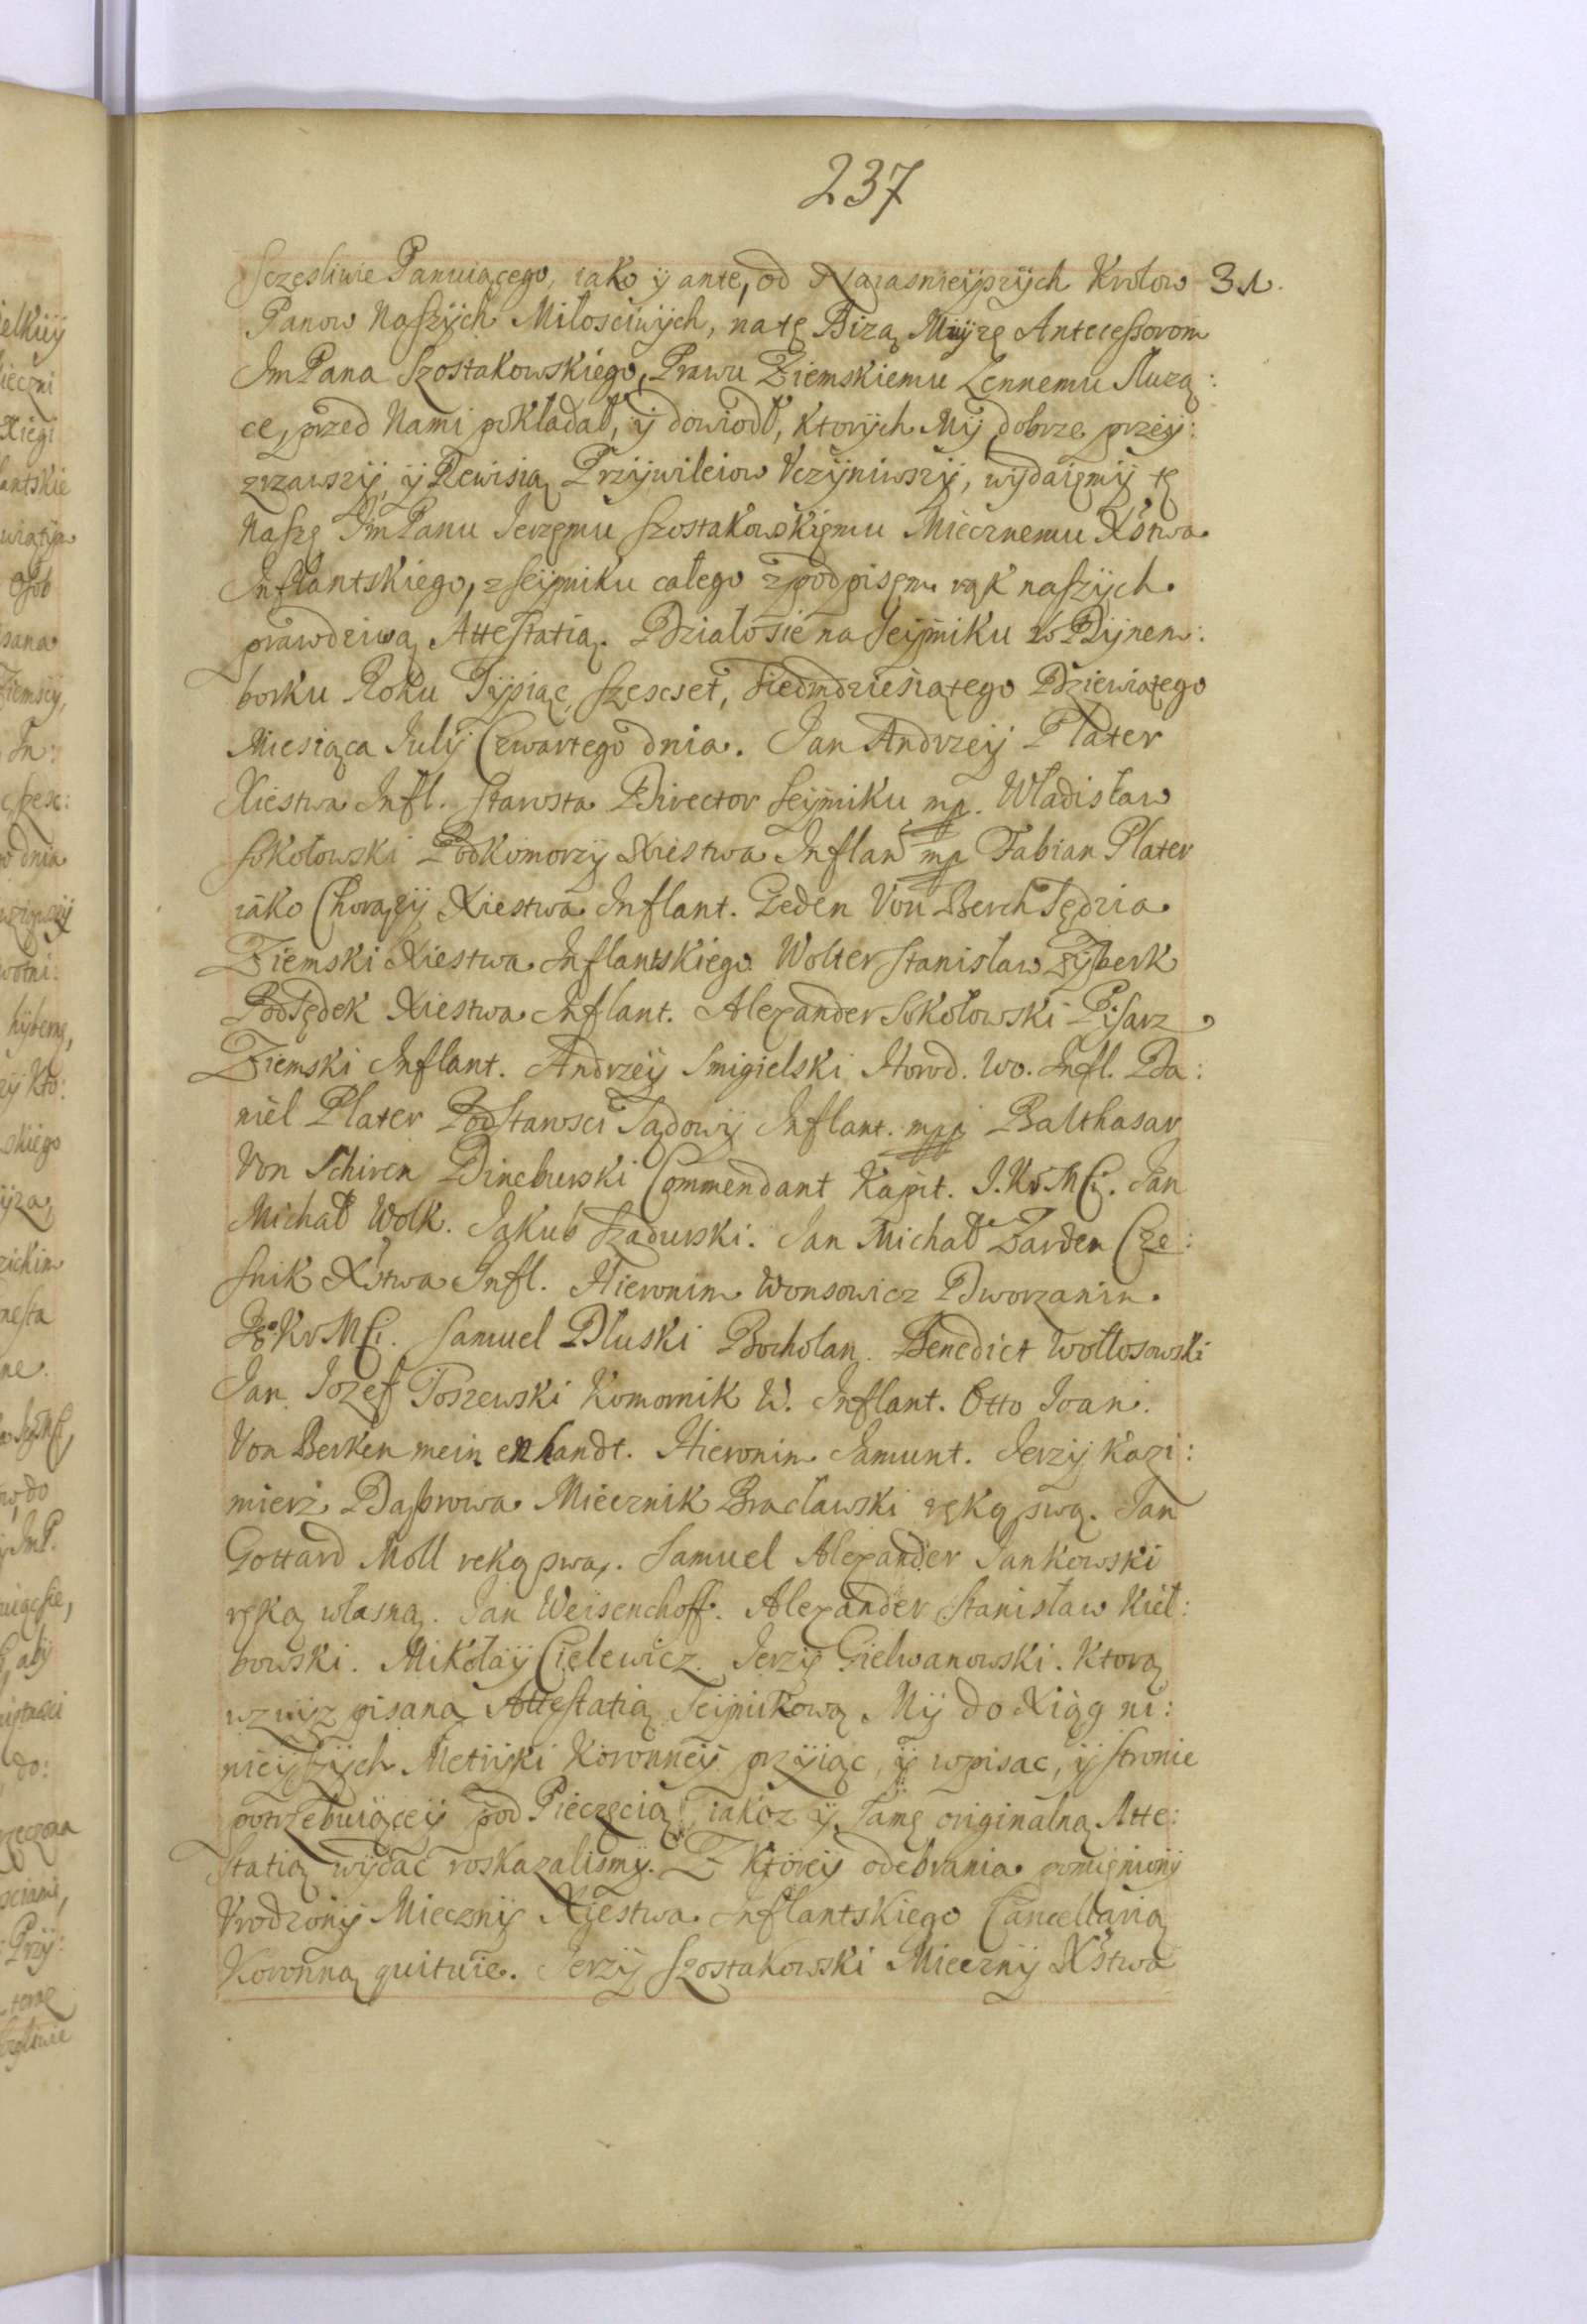 237
sczesliwie Panuiącego, iako ÿ ante, od Naiasnieÿszÿch Krolow 31.
Panow Naszÿch Miłosciwÿch, na tę Bizą Mÿzę Antecessorom
Jm Pana Szostakowskiego, Prawu Ziemskiemu Lennemu słuzą:
ce, przed Nami pokładał, ÿ dowiodł, ktorÿch Mÿ dobrze przeÿ:
zrzawszÿ, ÿ Rewisią Przÿwileiow Vczÿniwszÿ, wÿdaięmÿ tę
Naszę Jm Panu Jerzęmu Szostakowskięmu Miecznemu Xstwa
Inflantskiego, z seÿmiku całego z podpisęm rąk naszÿch
prawdziwą Attestatią. Działo sie na Seÿmiku w Dÿnem:
borku Roku Tÿsiąc, szescset, siedmdziesiątego Dziewiątego
Miesiąca Julÿ Czwartego dnia. Jan Andrzeÿ Plater
Xiestwa Infl. starosta Director seÿmiku mp. Władisław
Sokołowski Podkomorzÿ Xiestwa Inflan mp Fabian Plater
iako Chorązÿ Xiestwa Inflant. Geden Von Berch Sędzia
Ziemski Xiestwa Inflantskiego Wolter Stanisław Zÿberk
Podsędek Xiestwa Inflant. Alexander Sokołowski Pisarz
Ziemski Inflant. Andrzeÿ Smigielski Horod. Wo. Infl. Da:
niel Plater Podstarosci Sądowÿ Inflant. mpp Balthasar
Von Schiren Dineburski Commendant Kapit. J. Kr Mci. Jan
Michał Wolk. Jakub Szadurski. Jan Michał Zarden Cze:
snik Xstwa Infl. Hieronim Wonsowicz Dworzanin
Je° Kr Mci. Samuel Dłuski Bocholan. Benedict Wołłosowski
Jan Jozef Toszewski Komornik W. Inflant. Otto Joan.
Von Berken mein en handt. Hieronim Jamunt. Jerzÿ Kazi:
mierz Dąbrowa Miecznik Bracławski ręką swą. Jan
Gottard Moll reką swą. Samuel Alexander Jankowski
ręką własną. Jan Weisenchoff. Alexander Stanisław Kieł:
bowski. Mikołaÿ Cielewicz. Jerzÿ Gielwanowski. Ktorą
wzwÿz pisaną Attestatią Seÿmikową Mÿ do Xiąg ni:
nieÿszÿch Metrÿki Koronneÿ przÿiąc, ÿ wpisac, ÿ stronie
potrzebuiąceÿ pod Pieczęcią, iakoz ÿ samę originalną Atte:
statią wÿdac roskazalismÿ. Z ktoreÿ odebrania pomięnionÿ
Vrodzonÿ Mieczny Xiestwa Inflantskiego Cancellarią
Koronną quituie. Jerzÿ Szostakowski Mieczny Xstwa